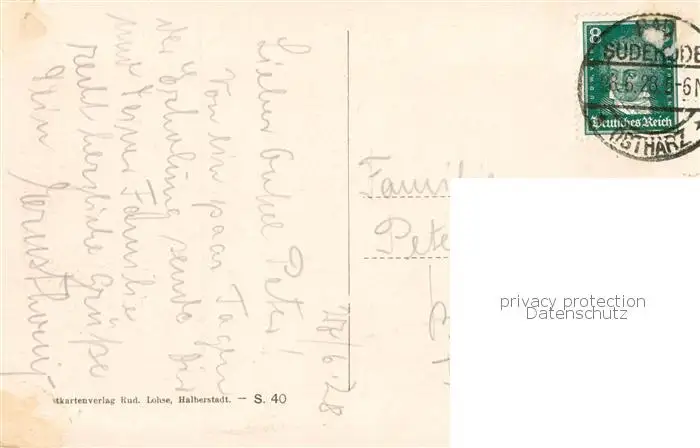 27/6.28.
Lieber Onkel Peter!
Von ein paar Tagen
der Erholung sende Dir
und Deiner Familie
recht herzliche Grüße
Dein
Familie
Pete
8
Deutsches Reich
BAD
SUDERODE
28 6-6N
OSTHARZ
stkartenverlag Rud. Lohse, Halberstadt. — S. 40
privacy protection
Datenschutz